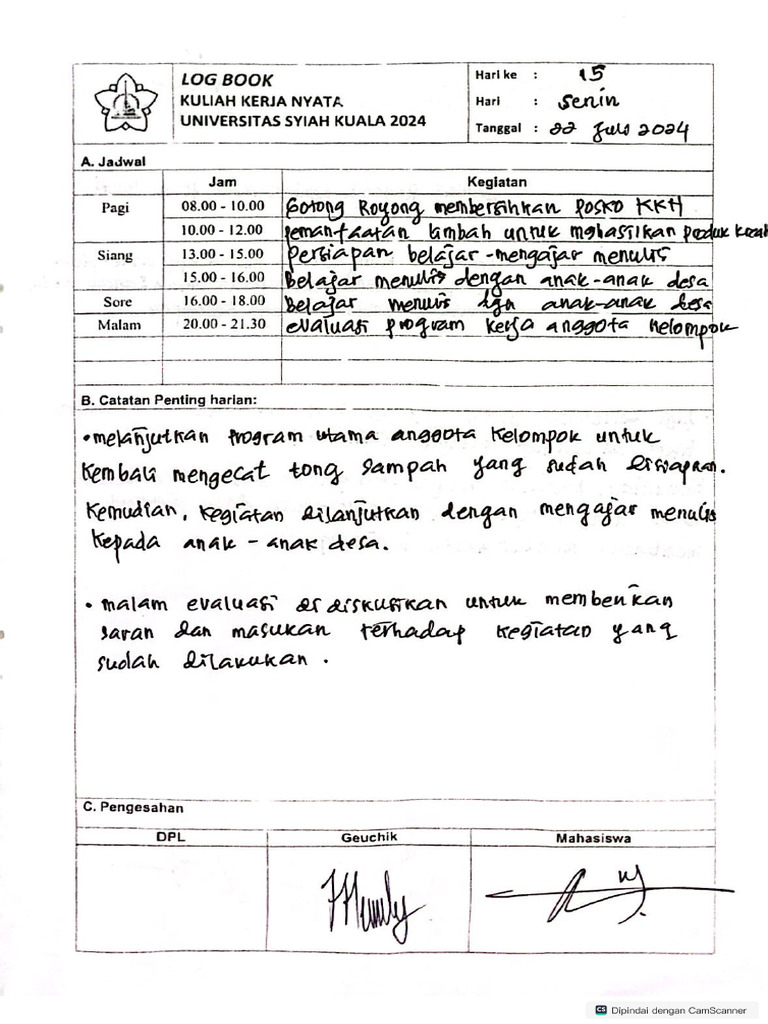 LOG BOOK
KULIAH KERJA NYATA
UNIVERSITAS SYIAH KUALA 2024
Hari ke : 15
Hari : Senin
Tanggal : 22 Juli 2024
A. Jadwal
Jam Kegiatan
Pagi 08.00 - 10.00 Gotong Royong membersihkan POSKO KKN
10.00 - 12.00 pemanfaatan limbah untuk mghasilkan produk
Siang 13.00 - 15.00 Persiapan belajar-mengajar menulis
15.00 - 16.00 Belajar menulis dengan anak-anak desa
Sore 16.00 - 18.00 Belajar menulis dgn anak-anak desa
Malam 20.00 - 21.30 evaluasi program kerja anggota kelompok
B. Catatan Penting harian:
• melanjutkan program utama anggota kelompok untuk
kembali mengecat tong sampah yang sudah disiapkan.
Kemudian, kegiatan dilanjutkan dengan mengajar menulis
kepada anak - anak desa.
• malam evaluasi di diskusikan untuk memberikan
saran dan masukan terhadap kegiatan yang
sudah dilakukan.
C. Pengesahan
DPL Geuchik Mahasiswa
CS Dipindai dengan CamScanner